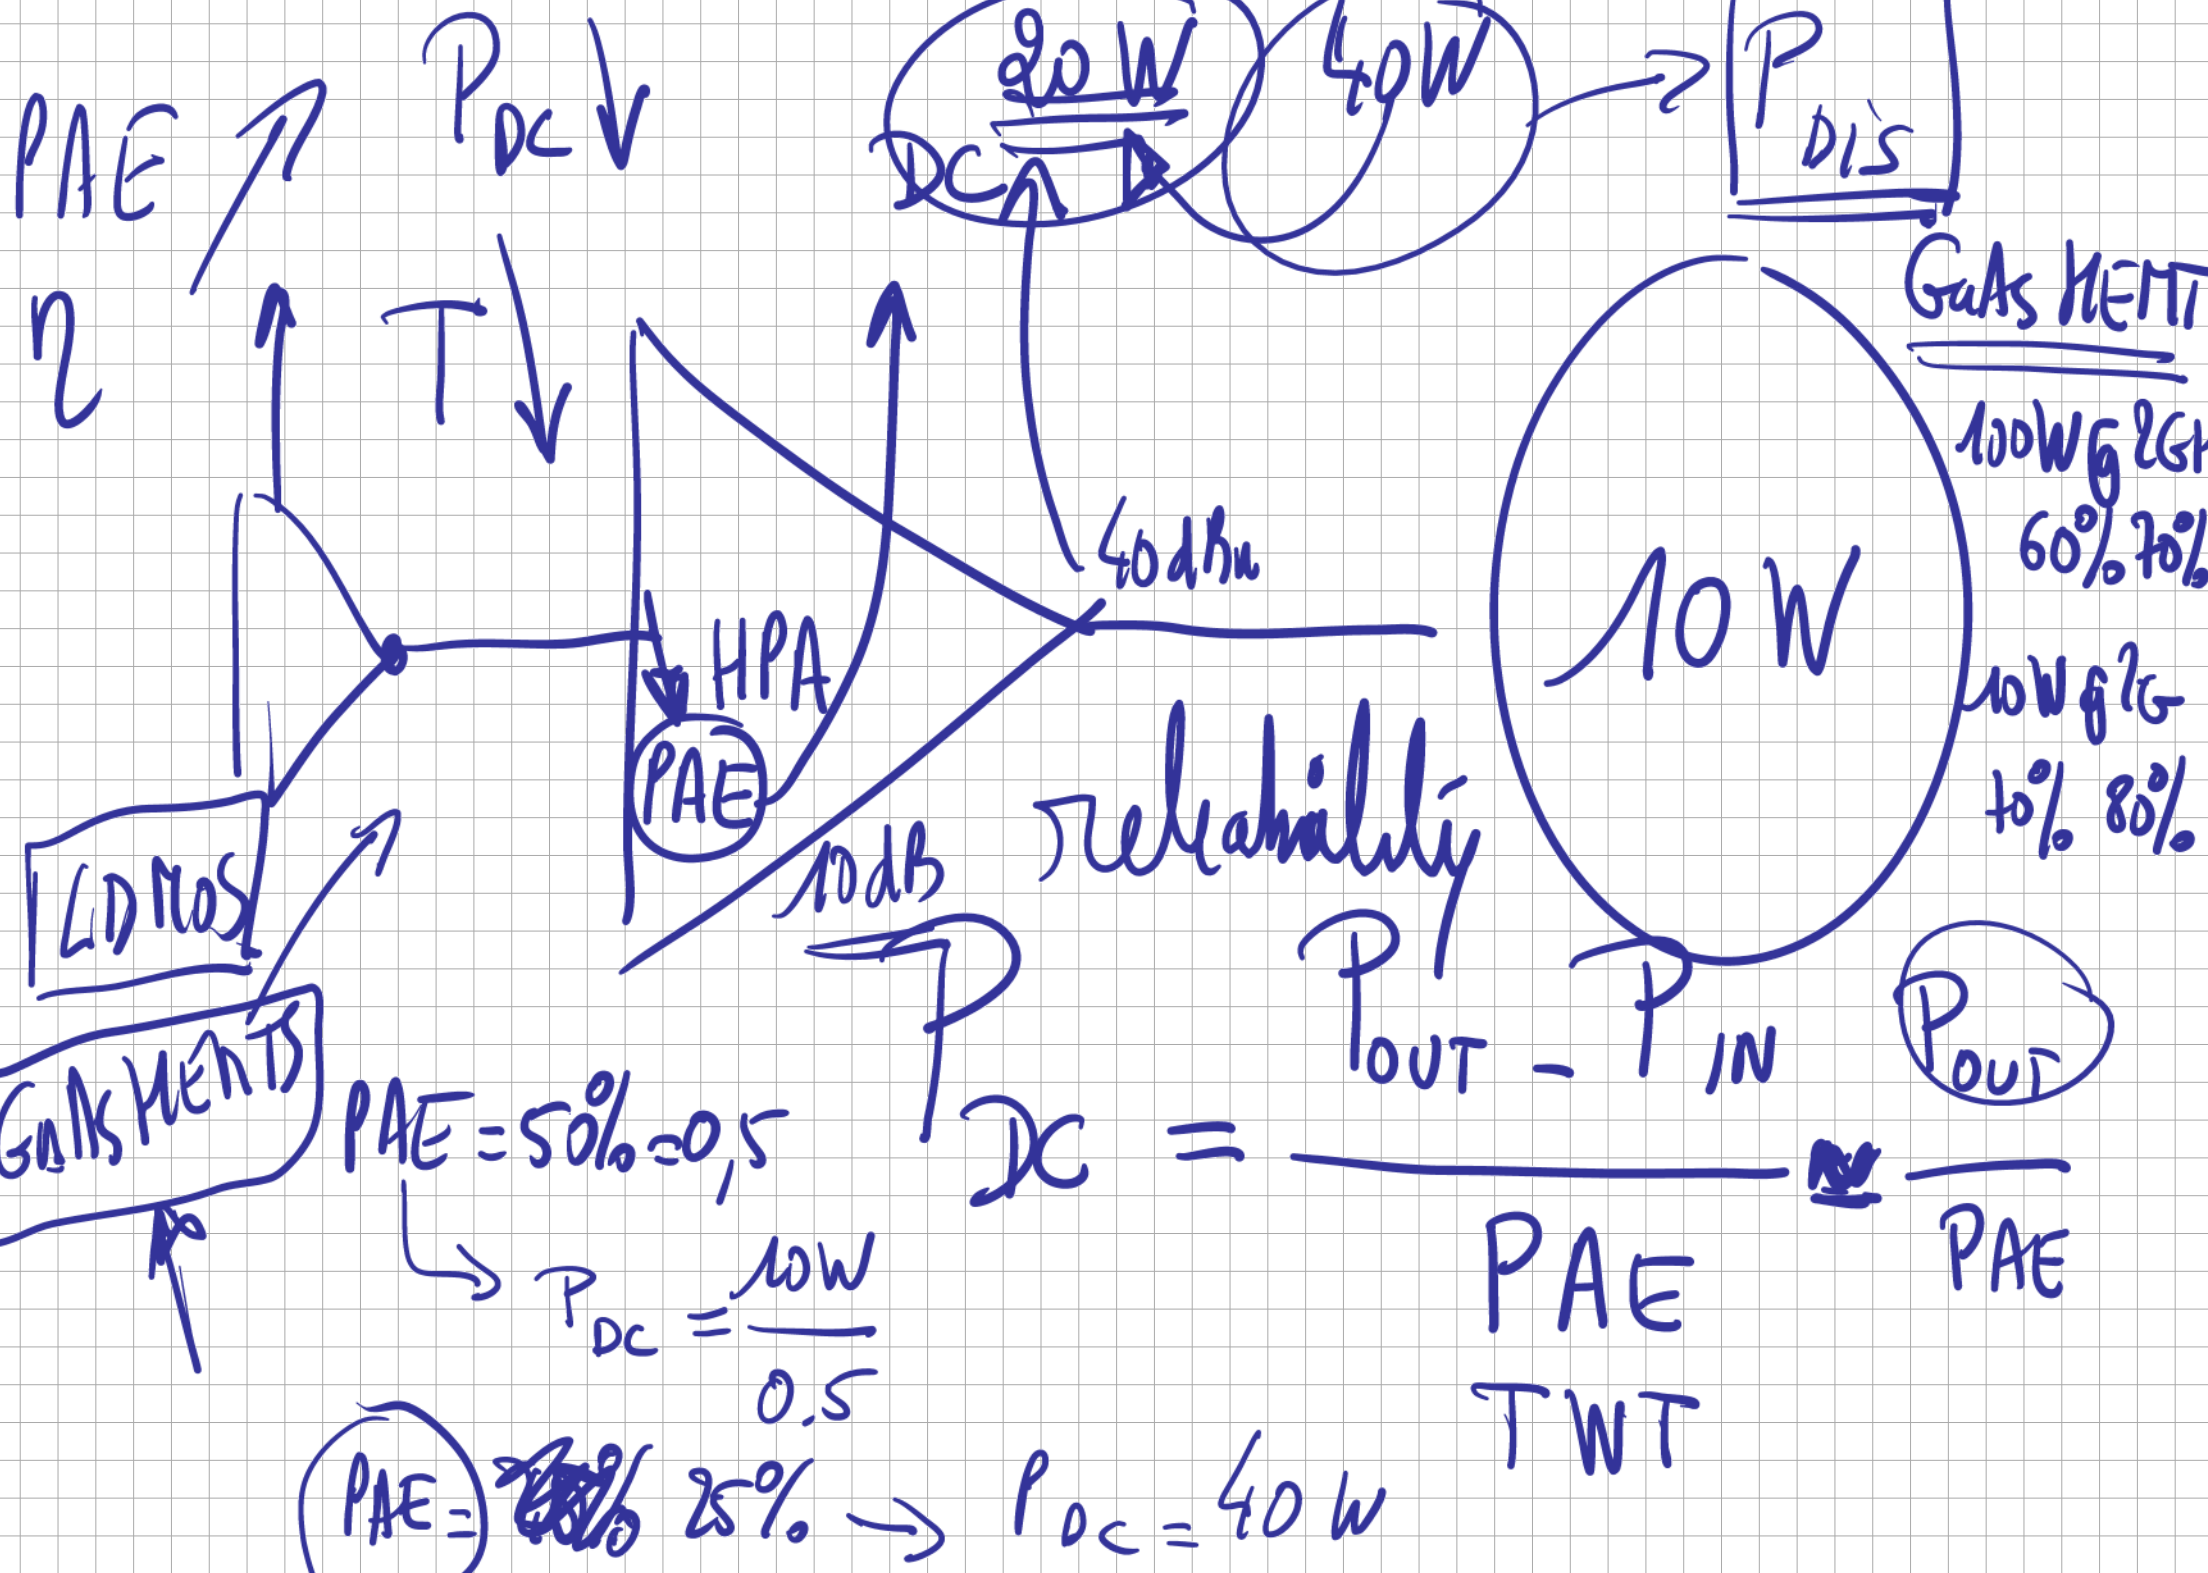 PAE
P DC
20 W
40W
P DIS
DC
η
T
GaAs HEMT
100W @ 2GH
60% 70%
40 dBm
10 W
HPA
PAE
10W @ 2G
70% 80%
10 dB
reliability
LDMOS
GaAs HEMTS
PAE = 50% = 0,5
P DC = P OUT - P IN / PAE ≈ P OUT / PAE
P DC = 10W / 0.5
TWT
PAE = 25% → P DC = 40 W